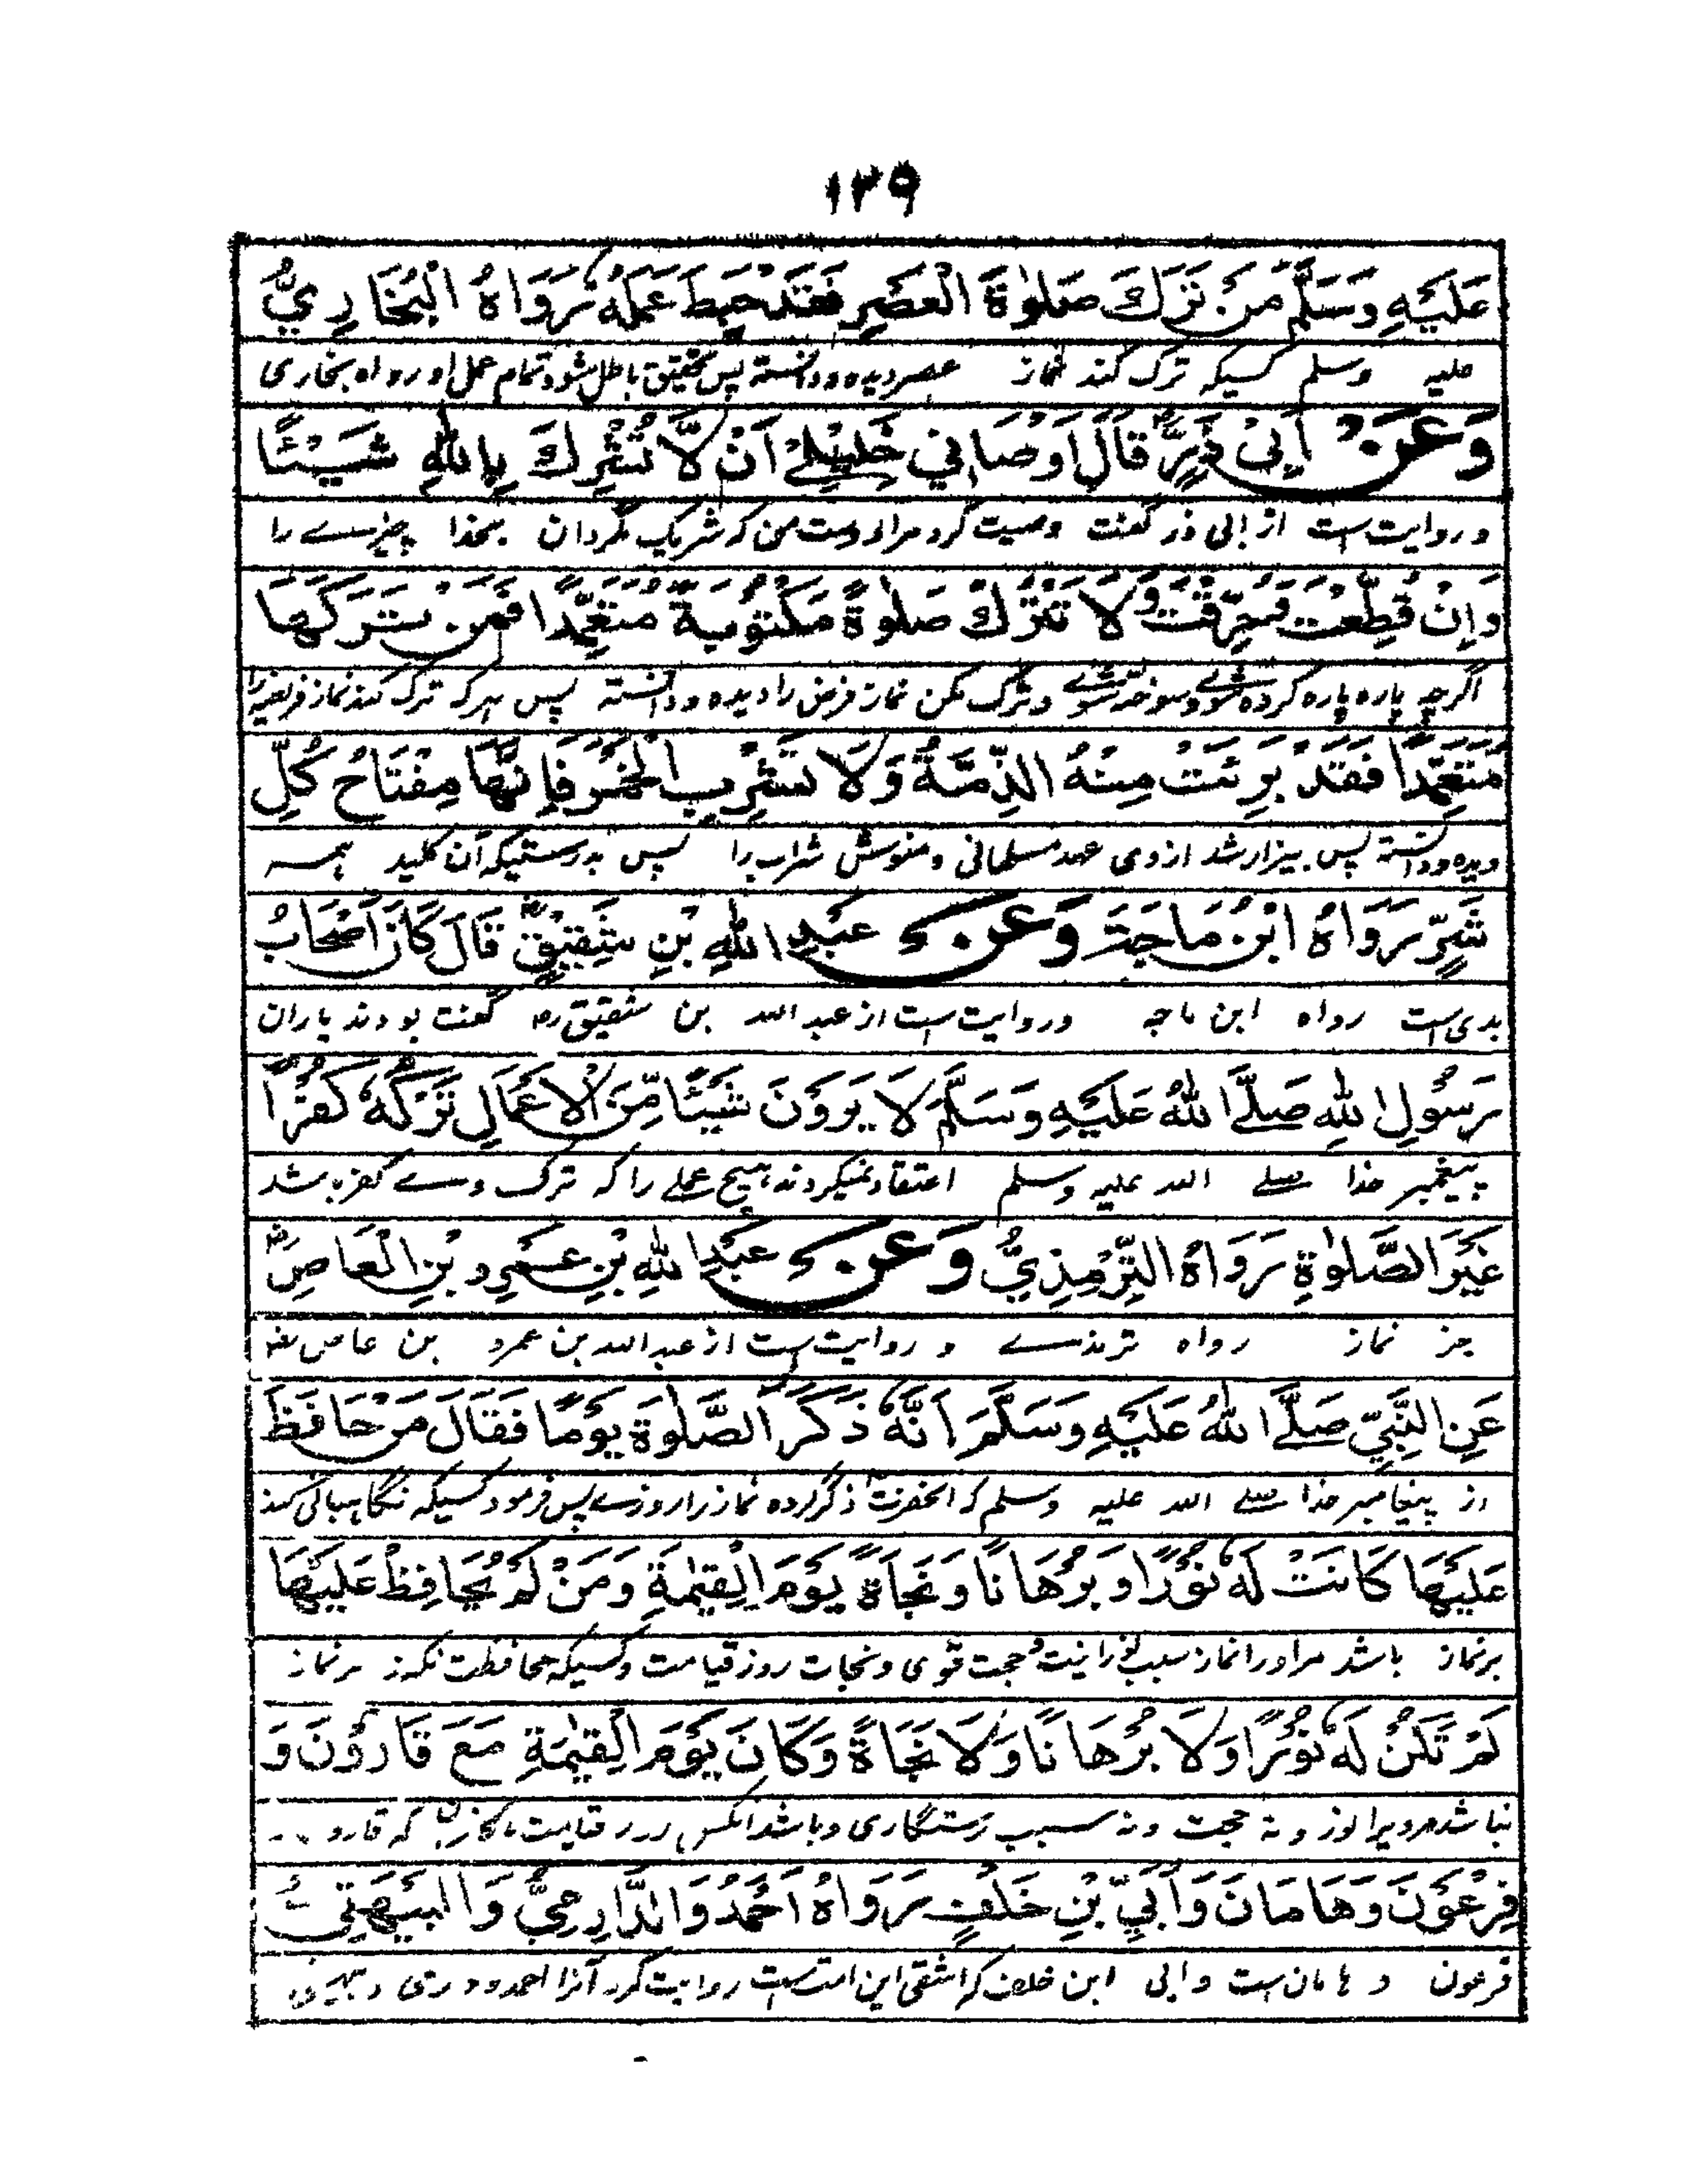 ١٣٩
عَلَيْهِ وَسَلَّمَ مَنْ تَرَكَ صَلٰوةَ الْعَصْرِ فَقَدْ حَبِطَ عَمَلُهٗ رَوَاهُ الْبُخَارِيُّ
علیہ وسلم کسیکہ ترک کند نماز عصر دیدہ ودانستہ پس تحقیق باطل شود تمام عمل او رواہ بخاری
وَعَنْ أَبِيْ ذَرٍّ قَالَ اَوْصَانِي خَلِيْلِيْ اَنْ لَّا تُشْرِكَ بِاللّٰهِ شَيْئًا
و روایت ست از ابی ذر گفت وصیت کرد مرا دوست من کہ شریک مگردان بخدا چیزے را
وَاِنْ قُطِّعْتَ وَحُرِّقْتَ وَلَا تَتْرُكْ صَلٰوةً مَكْتُوْبَةً مُتَعَمِّدًا فَمَنْ تَرَكَهَا
اگرچہ پارہ پارہ کردہ شوی وسوختہ شوی و ترک مکن نماز فرض را دیدہ ودانستہ پس ہرکہ ترک کند نماز فریضہ را
مُتَعَمِّدًا فَقَدْ بَرِئَتْ مِنْهُ الذِّمَّةُ وَلَا تَشْرِبِ الْخَمْرَ فَاِنَّهَا مِفْتَاحُ كُلِّ
دیدہ ودانستہ پس بیزار شد ازوی عہد مسلمانی و منوش شراب را پس بدرستیکہ آن کلید ہمہ
شَرٍّ رَوَاهُ ابْنُ مَاجَةَ وَعَنْ عَبْدِ اللّٰهِ بْنِ شَقِيْقٍ قَالَ كَانَ اَصْحَابُ
بدی ست رواہ ابن ماجہ وروایت ست از عبد اللہ بن شقیق رہ گفت بودند یاران
رَسُوْلِ اللّٰهِ صَلَّے اللّٰهُ عَلَيْهِ وَسَلَّمَ لَا يَرَوْنَ شَيْئًا مِّنَ الْاَعْمَالِ تَرْكُهٗ كُفْرًا
پیغمبر خدا صلے اللہ علیہ وسلم اعتقاد نمیکردند ہیچ عملے را کہ ترک وے کفر باشد
غَيْرَ الصَّلٰوةِ رَوَاهُ التِّرْمِذِيُّ وَعَنْ عَبْدِ اللّٰهِ بْنِ عَمْرِو بْنِ الْعَاصِ
جز نماز رواہ ترمذے و روایت ست از عبد اللہ بن عمرو بن عاص
عَنِ النَّبِيِّ صَلَّے اللّٰهُ عَلَيْهِ وَسَلَّمَ اَنَّهٗ ذَكَرَ الصَّلٰوةَ يَوْمًا فَقَالَ مَنْ حَافَظَ
از پیغامبر خدا صلے اللہ علیہ وسلم کہ آنحضرت ذکر کردہ نماز را روزے پس فرمود کسیکہ نگاہبانی کند
عَلَيْهَا كَانَتْ لَهٗ نُوْرًا وَبُرْهَانًا وَنَجَاةً يَوْمَ الْقِيٰمَةِ وَمَنْ لَمْ يُحَافِظْ عَلَيْهَا
برنماز باشد مر اورا نماز سبب نورانیت و حجت قوی و نجات روز قیامت و کسیکہ محافظت نکند بر نماز
لَمْ تَكُنْ لَهٗ نُوْرًا وَلَا بُرْهَانًا وَلَا نَجَاةً وَكَانَ يَوْمَ الْقِيٰمَةِ مَعَ قَارُوْنَ وَ
نباشد مر ویرا نور و نہ حجت ونہ سبب رستگاری وباشد آنکس در قیامت کہ قارو
فِرْعَوْنَ وَهَامَانَ وَاُبَيِّ بْنِ خَلْفٍ رَوَاهُ اَحْمَدُ وَالدَّارِمِيُّ وَالْبَيْهَقِيُّ
فرعون و ہامان ست و ابی ابن خلف کہ اشقی این امت ست روایت کرد آنرا احمد و